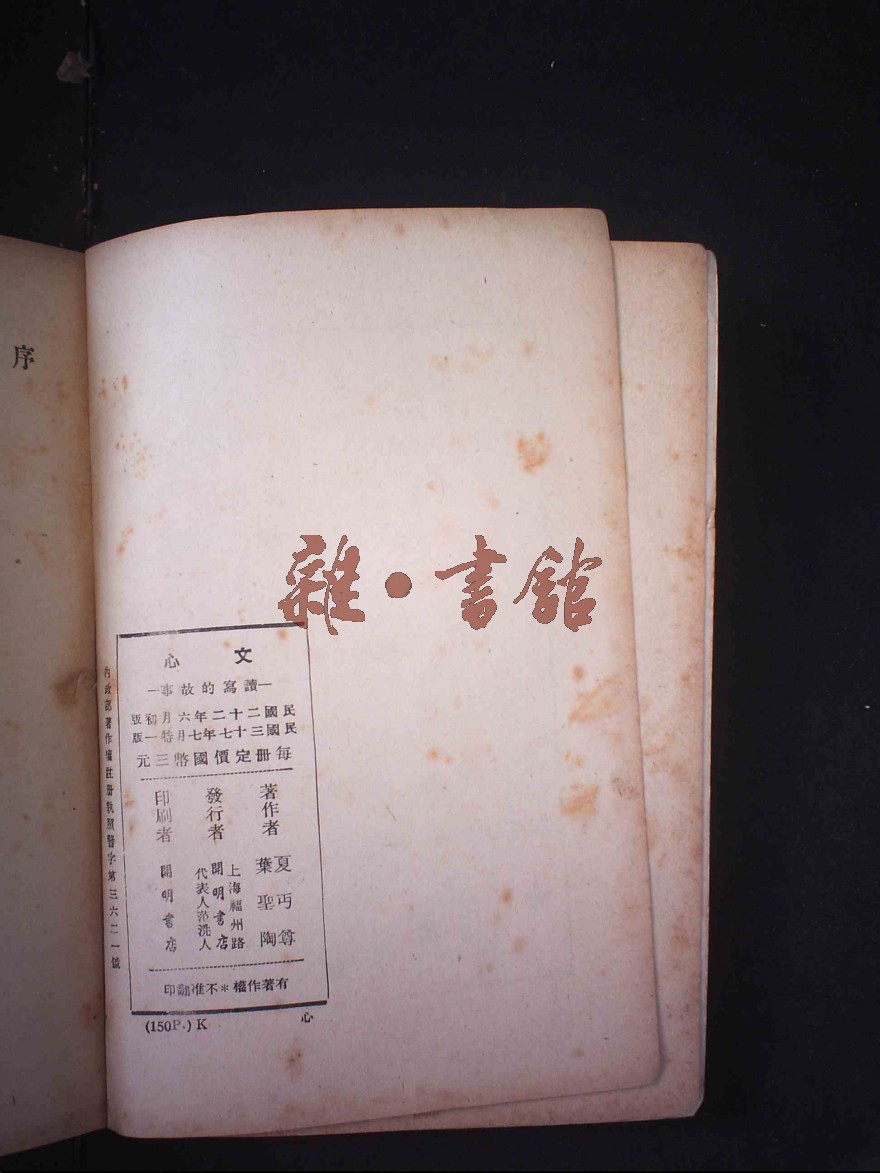 序
雜•書館
文心
—讀寫的故事—
民國二十二年六月初版
民國三十七年七月特一版
每冊定價國幣三元
著作者 夏丏尊
葉聖陶
發行者 上海福州路
開明書店
代表人范洗人
印刷者 開明書店
有著作權*不准翻印
內政部著作權註冊執照警字第三六二一號
(150P.) K
心